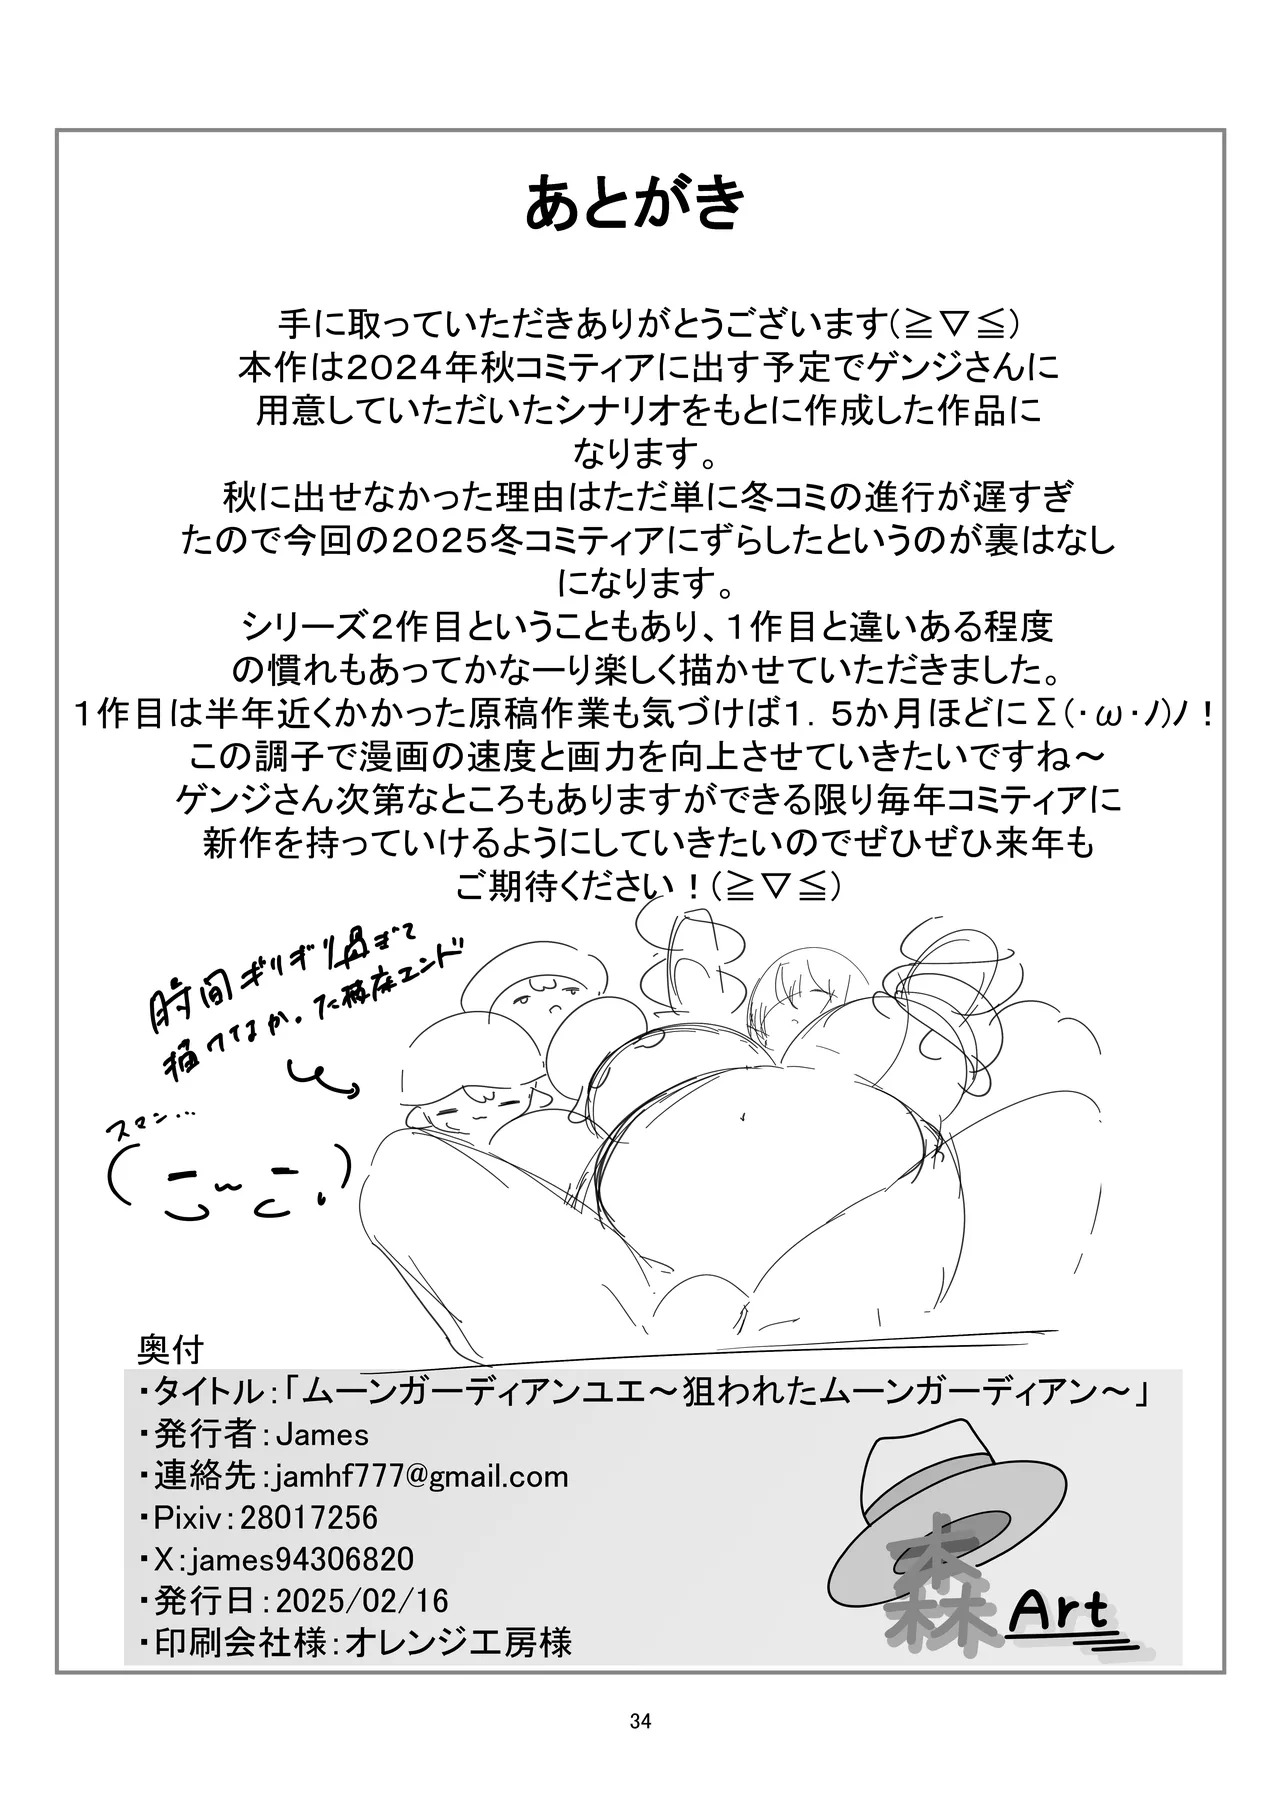 あとがき
手に取っていただきありがとうございます(≧▽≦)
本作は2024年秋コミティアに出す予定でゲンジさんに
用意していただいたシナリオをもとに作成した作品に
なります。
秋に出せなかった理由はただ単に冬コミの進行が遅すぎ
たので今回の2025冬コミティアにずらしたというのが裏はなし
になります。
シリーズ2作目ということもあり、1作目と違いある程度
の慣れもあってかなーり楽しく描かせていただきました。
1作目は半年近くかかった原稿作業も気づけば1.5か月ほどにΣ(・ω・ﾉ)ﾉ！
この調子で漫画の速度と画力を向上させていきたいですね～
ゲンジさん次第なところもありますができる限り毎年コミティアに
新作を持っていけるようにしていきたいのでぜひぜひ来年も
ご期待ください！(≧▽≦)
時間ギリギリ過ぎて
描けなかった種床エンド
スマン…
奥付
・タイトル：「ムーンガーディアンユエ～狙われたムーンガーディアン～」
・発行者：James
・連絡先：jamhf777@gmail.com
・Pixiv：28017256
・X：james94306820
・発行日：2025/02/16
・印刷会社様：オレンジ工房様
森Art
34